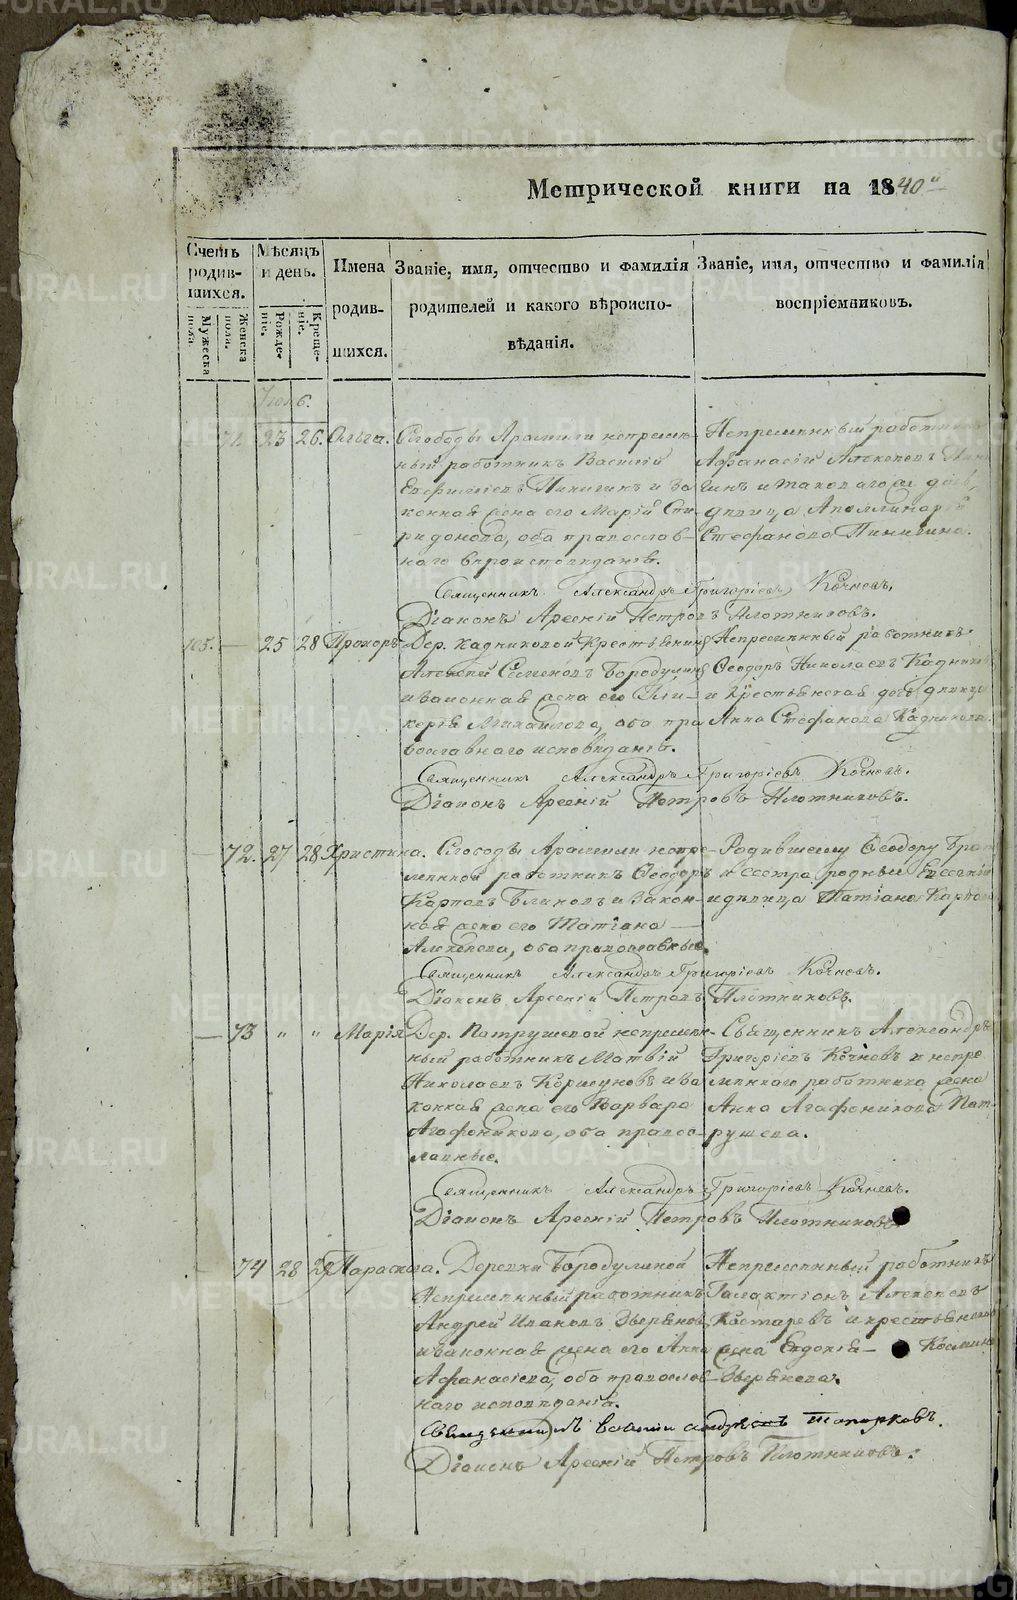 Метрической книги на 1840й
Счетъ родив-шихся.
Мужеска пола.
Женска пола.
Мѣсяцъ и день.
Рожде-ніе.
Креще-ніе.
Имена
родив-
шихся.
Званіе, имя, отчество и фамилія
родителей и какого вѣроиспо-
вѣданія.
Званіе, имя, отчество и фамилія
воспріемниковъ.
23 26. Ольга.
Слободы Арамили непремѣн-
ный работникъ Василій
Евфиміевъ Пинигинъ и за-
конная жена его Марія Спи-
ридонова, оба православ-
наго вѣроисповѣданія.
Непремѣнный работникъ
Афанасій Алексѣевъ
дѣвица Аполлинарія
Стефанова Пинигина.
Священникъ Александръ Григоріевъ Кочневъ.
Діаконъ Арсеній Петровъ Плотниковъ.
105. — 25 28 Прохоръ
Дер. Кадниковой крестьянинъ
Алексѣй Семеновъ Бородулинъ
и законная жена его Гли-
керія Михайлова, оба пра-
вославнаго исповѣданія.
Непремѣнный работникъ
Ѳеодоръ Николаевъ Кадник
и крестьянская дочь дѣвица
Анна Стефанова Кадникова.
Священникъ Александръ Григоріевъ Кочневъ.
Діаконъ Арсеній Петровъ Плотниковъ.
— 72. 27 28 Христина.
Слободы Арамили непре-
мѣнной работникъ Ѳеодоръ
Карповъ Блиновъ и закон-
ная жена его Татіана
Алексѣева, оба православные.
Родившему Ѳеодору брат
и сестра родные Евсевій
и дѣвица Татіана Карпова
Священникъ Александръ Григоріевъ Кочневъ.
Діаконъ Арсеній Петровъ Плотниковъ.
— 73 " " Марія
Дер. Патрушевой непремѣн-
ный работникъ Матвій
Николаевъ Коршуновъ и за-
конная жена его Варвара
Агафоникова, оба правос-
лавные.
Священникъ Александръ
Григоріевъ Кочневъ и непре
мѣннаго работника жена
Анна Агафоникова Пат-
рушева.
Священникъ Александръ Григоріевъ Кочневъ.
Діаконъ Арсеній Петровъ Плотниковъ
— 74 28 29 Параскева.
Деревни Бородулиной
Непремѣнный работникъ
Андрей Ивановъ Звѣревъ
и законная жена его Анна
Афанасіева, оба православ-
наго исповѣданія.
Непремѣнный работникъ
Галактіонъ Алексѣевъ
Костаревъ и крестьянская
жена Евдокія — Космина
Звѣрева.
Топорковъ.
Діаконъ Арсеній Петровъ Плотниковъ.
METRIKI.GASO-URAL.RU